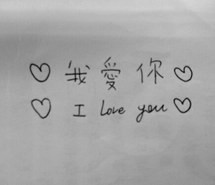 ♡ 我愛你 ♡
♡ I love you ♡